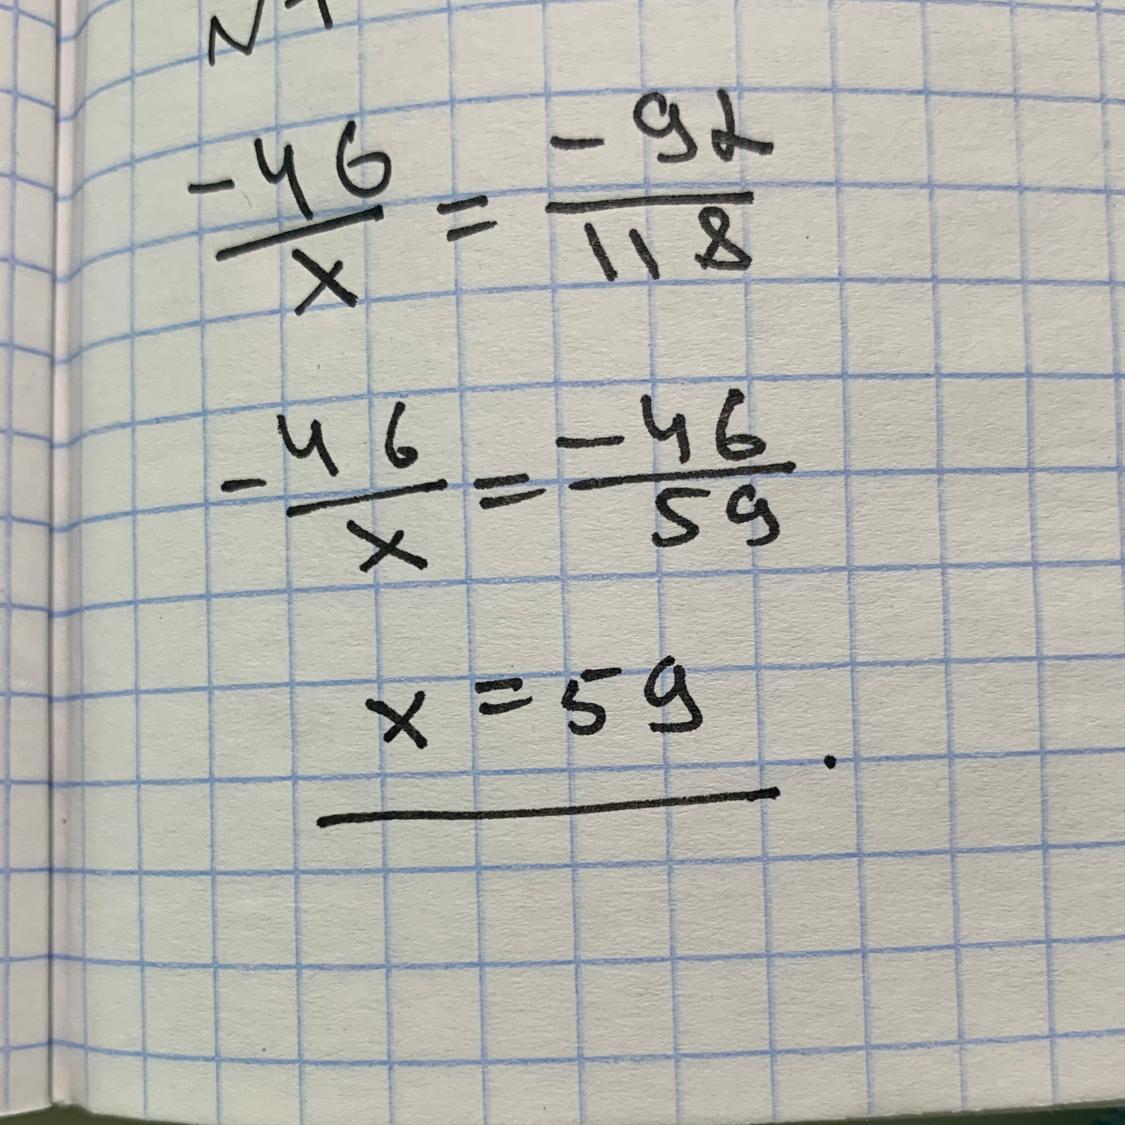 -46/x = -92/118
-46/x = -46/59
x = 59